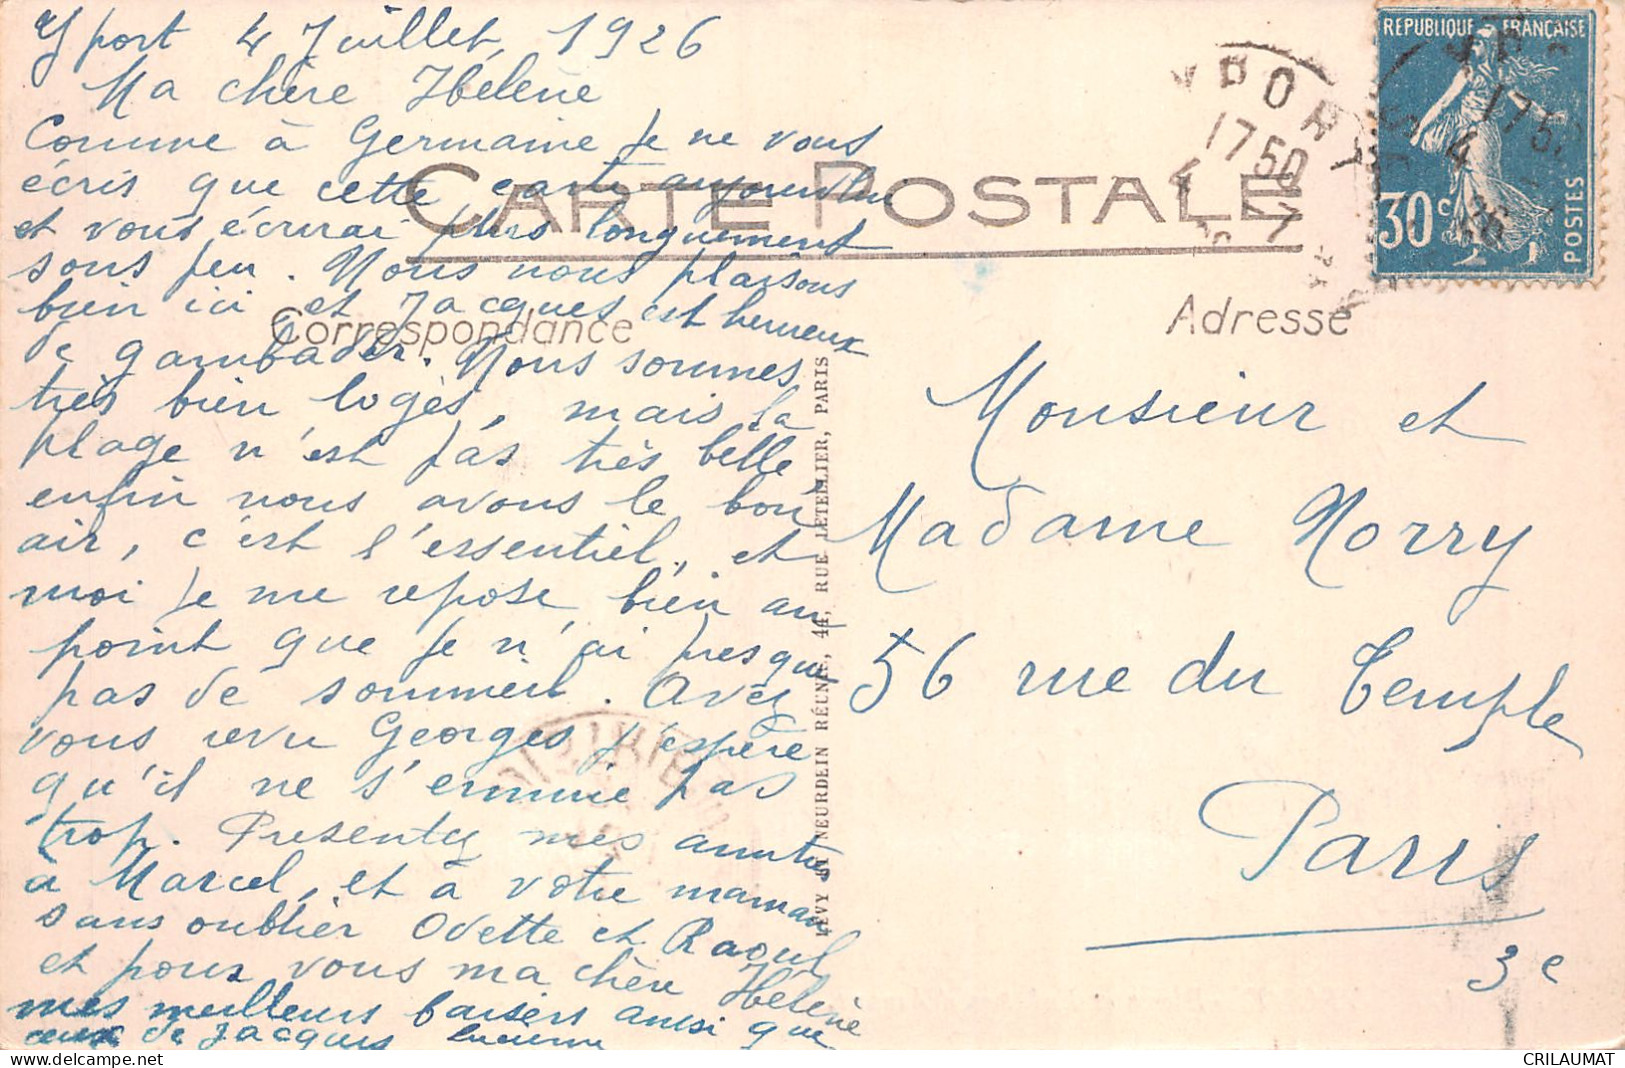 Yport 4 Juillet, 1926
Ma chère Hélène
Comme à Germaine je ne vous
écris que cette carte aujourd'hui
et vous écrirai plus longuement
sous peu. Nous nous plaisons
bien ici et Jacques est heureux
de gambader. Nous sommes
très bien logés, mais la
plage n'est pas très belle
enfin nous avons le bon
air, c'est l'essentiel, et
moi je me repose bien au
point que je n'ai presque
pas de sommeil. Avez
vous revu Georges j'espère
qu'il ne s'ennuie pas
trop. Présentez mes amitiés
à Marcel, et à votre maman
sans oublier Odette et Raoul
et pour vous ma chère Hélène
mes meilleurs baisers ainsi que
ceux de Jacques Lucienne
CARTE POSTALE
Correspondance
Adresse
LÉVY ET NEURDEIN RÉUNIS, 44, RUE LETELLIER, PARIS
RÉPUBLIQUE FRANÇAISE
30c
POSTES
YPORT
17 50
4
7
17 50
4
26
Monsieur et
Madame Norry
56 rue du Temple
Paris
3e
DISTRIB
CRILAUMAT
https://www.delcampe.net